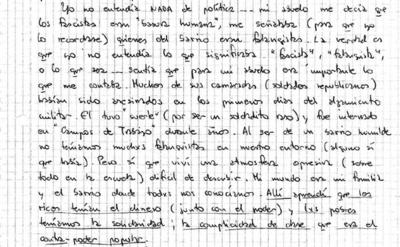 Yo no entendía NADA de política... mi abuelo me decía que
los fascistas eran "basura humana", me señalaba (para que yo
lo recordase) quienes del barrio eran falangistas. La verdad es
que yo no entendía lo que significaba "fascista", "falangista",
o lo que sea... sentía que para mi abuelo era importante lo
que me contaba. Muchos de sus camaradas (soldados republicanos)
habían sido asesinados en los primeros días del alzamiento
militar. El tuvo "suerte" (por ser un soldadito raso), fue internado
en "Campos de Trabajo" durante años. Al ser de un barrio humilde
no teníamos muchos falangistas en nuestro entorno (alguno sí
que había). Pero sí que viví una atmósfera opresiva (sobre
todo en la escuela) difícil de describir. Mi mundo era mi familia
y el barrio donde todos nos conocíamos. Allí aprendí que los
ricos tenían el dinero (junto con el poder) y los pobres
teníamos la solidaridad y la complicidad de clase que era el
contra-poder popular.